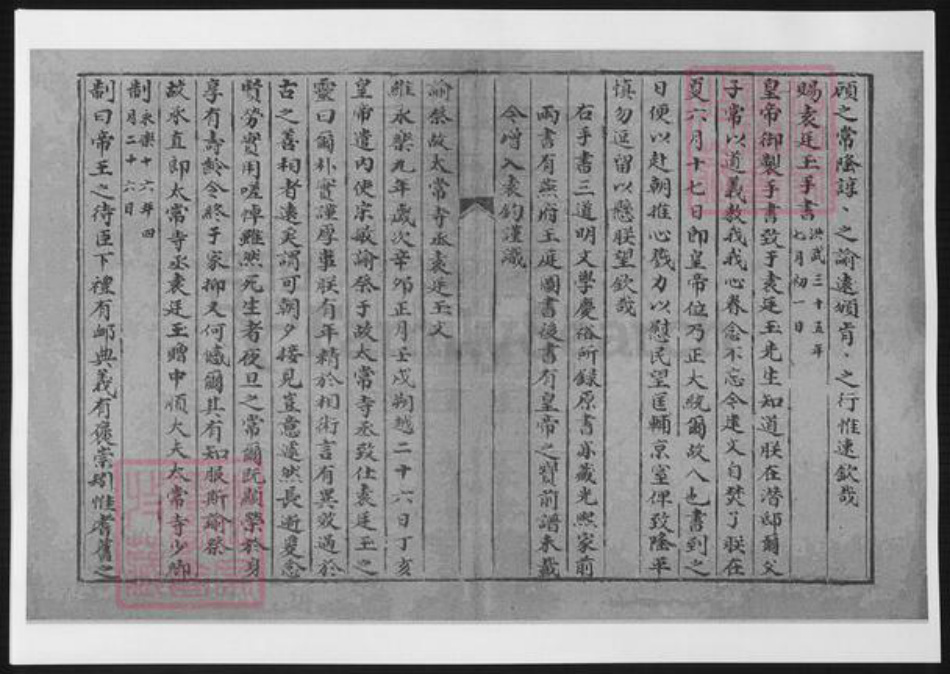 顧之常隆諄、之諭遠頒肯、之行惟速欽哉
賜袁廷玉手書洪武三十五年七月初一日
皇帝御製手書致于袁廷玉先生知道朕在潛邸爾父
子常以道義教我我心眷念不忘今建文自焚了朕在
夏六月十七日即皇帝位乃正大統爾故人也書到之
日便以赴朝推心戮力以慰民望匡輔京室俾致隆平
慎勿逗留以懸朕望欽哉
右手書三道明文學慶裕所録原書亦藏光熙家前
兩書有燕府王庭圖書後書有皇帝之寶前譜未載
今增入袁鈞謹識
諭祭故太常寺丞袁廷玉文
維永樂九年歲次辛卯正月壬戌朔越二十六日丁亥
皇帝遣内使宗敏諭祭于故太常寺丞致仕袁廷玉之
靈曰爾朴實謹厚事朕有年精於相術言有異效過於
古之善相者遠矣謂可朝夕接見豈意遽然長逝爰念
賢勞實用嗟悼雖然死生者夜旦之常爾既顯榮於身
享有壽齡令終于家抑又何憾爾其有知服斯諭祭
故承直郎太常寺丞袁廷玉贈中順大夫太常寺少卿
制永樂十六年四月二十六日
制曰帝王之待臣下禮有卹典義有褒崇矧惟耆舊之